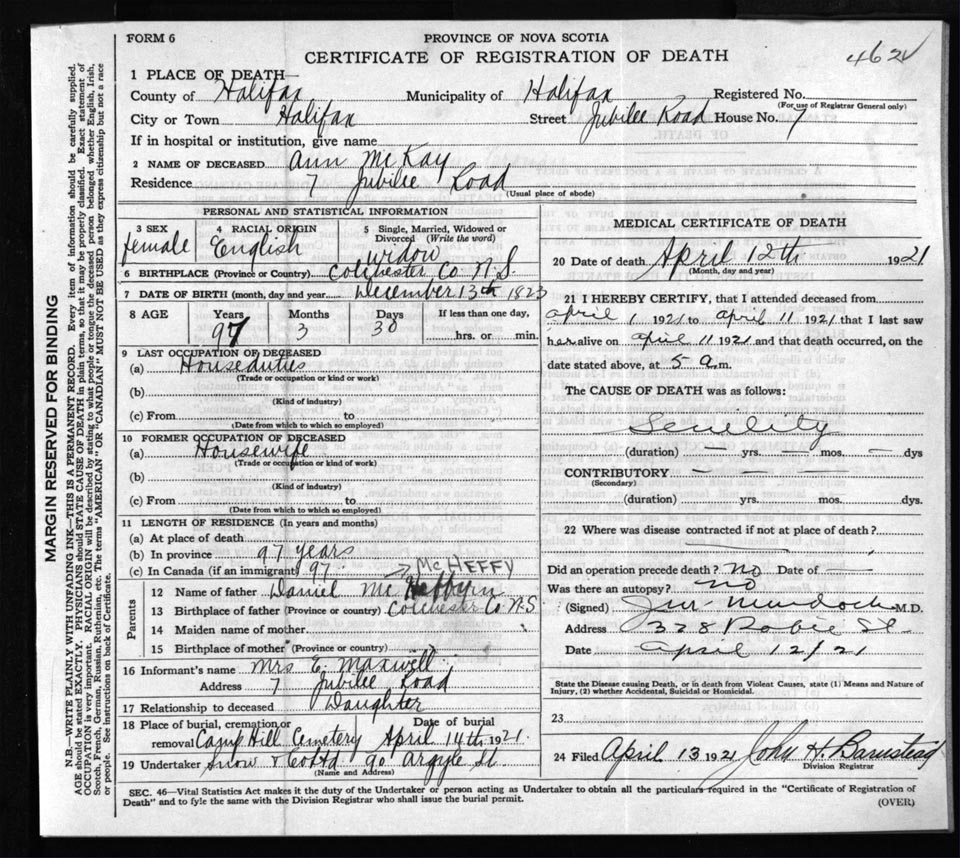 FORM 6
PROVINCE OF NOVA SCOTIA
CERTIFICATE OF REGISTRATION OF DEATH
462
1 PLACE OF DEATH—
County of Halifax Municipality of Halifax Registered No.
(For use of Registrar General only)
City or Town Halifax Street Jubilee Road House No. 7
If in hospital or institution, give name
2 NAME OF DECEASED Ann McKay
Residence 7 Jubilee Road
(Usual place of abode)
PERSONAL AND STATISTICAL INFORMATION
3 SEX 4 RACIAL ORIGIN 5 Single, Married, Widowed or Divorced (Write the word)
female English widow
6 BIRTHPLACE (Province or Country) Colchester Co N.S.
7 DATE OF BIRTH (month, day and year) December 13th 1823
8 AGE Years Months Days If less than one day,
97 3 30 hrs. or min.
9 LAST OCCUPATION OF DECEASED
(a) Houseduties
(Trade or occupation or kind or work)
(b)
(Kind of industry)
(c) From to
(Date from which to which so employed)
10 FORMER OCCUPATION OF DECEASED
(a) Housewife
(Trade or occupation or kind or work)
(b)
(Kind of industry)
(c) From to
(Date from which to which so employed)
11 LENGTH OF RESIDENCE (In years and months)
(a) At place of death
(b) In province 97 years
(c) In Canada (if an immigrant) 97
McHEFFY
Parents
12 Name of father Daniel Mc
13 Birthplace of father (Province or country) Colchester Co N.S.
14 Maiden name of mother
15 Birthplace of mother (Province or country)
16 Informant's name Mrs E. Maxwell
Address 7 Jubilee Road
17 Relationship to deceased Daughter
18 Place of burial, cremation or removal Camp Hill Cemetery Date of burial April 14th 1921
19 Undertaker Snow & Co Ltd 90 Argyle St.
(Name and Address)
MEDICAL CERTIFICATE OF DEATH
20 Date of death April 12th 1921
(Month, day and year)
21 I HEREBY CERTIFY, that I attended deceased from
April 1 1921 to April 11 1921 that I last saw
her alive on April 11 1921 and that death occurred, on the
date stated above, at 5 a.m.
The CAUSE OF DEATH was as follows:
Senility
(duration) — yrs. — mos. — dys
CONTRIBUTORY — — —
(Secondary)
(duration) yrs. mos. dys.
22 Where was disease contracted if not at place of death?
Did an operation precede death? no Date of —
Was there an autopsy? no
(Signed) Murdoch M.D.
Address 328 Robie St.
Date April 12/21
State the Disease causing Death, or in death from Violent Causes, state (1) Means and Nature of
Injury, (2) whether Accidental, Suicidal or Homicidal.
23
24 Filed April 13 1921 John H. Barnstead
Division Registrar
SEC. 46—Vital Statistics Act makes it the duty of the Undertaker or person acting as Undertaker to obtain all the particulars required in the "Certificate of Registration of
Death" and to fyle the same with the Division Registrar who shall issue the burial permit.
(OVER)
MARGIN RESERVED FOR BINDING
N.B.—WRITE PLAINLY WITH UNFADING INK—THIS IS A PERMANENT RECORD. Every item of information should be carefully supplied.
AGE should be stated EXACTLY. PHYSICIANS should STATE CAUSE OF DEATH in plain terms, so that it may be properly classified. Exact statement of
OCCUPATION is very important. RACIAL ORIGIN will be described by stating to what people or tongue the deceased person belonged whether English, Irish,
Scotch, French, German, Russian, Ruthenian, etc. The terms "AMERICAN" OR "CANADIAN" MUST NOT BE USED as they express citizenship but not a race
or people. See instructions on back of Certificate.